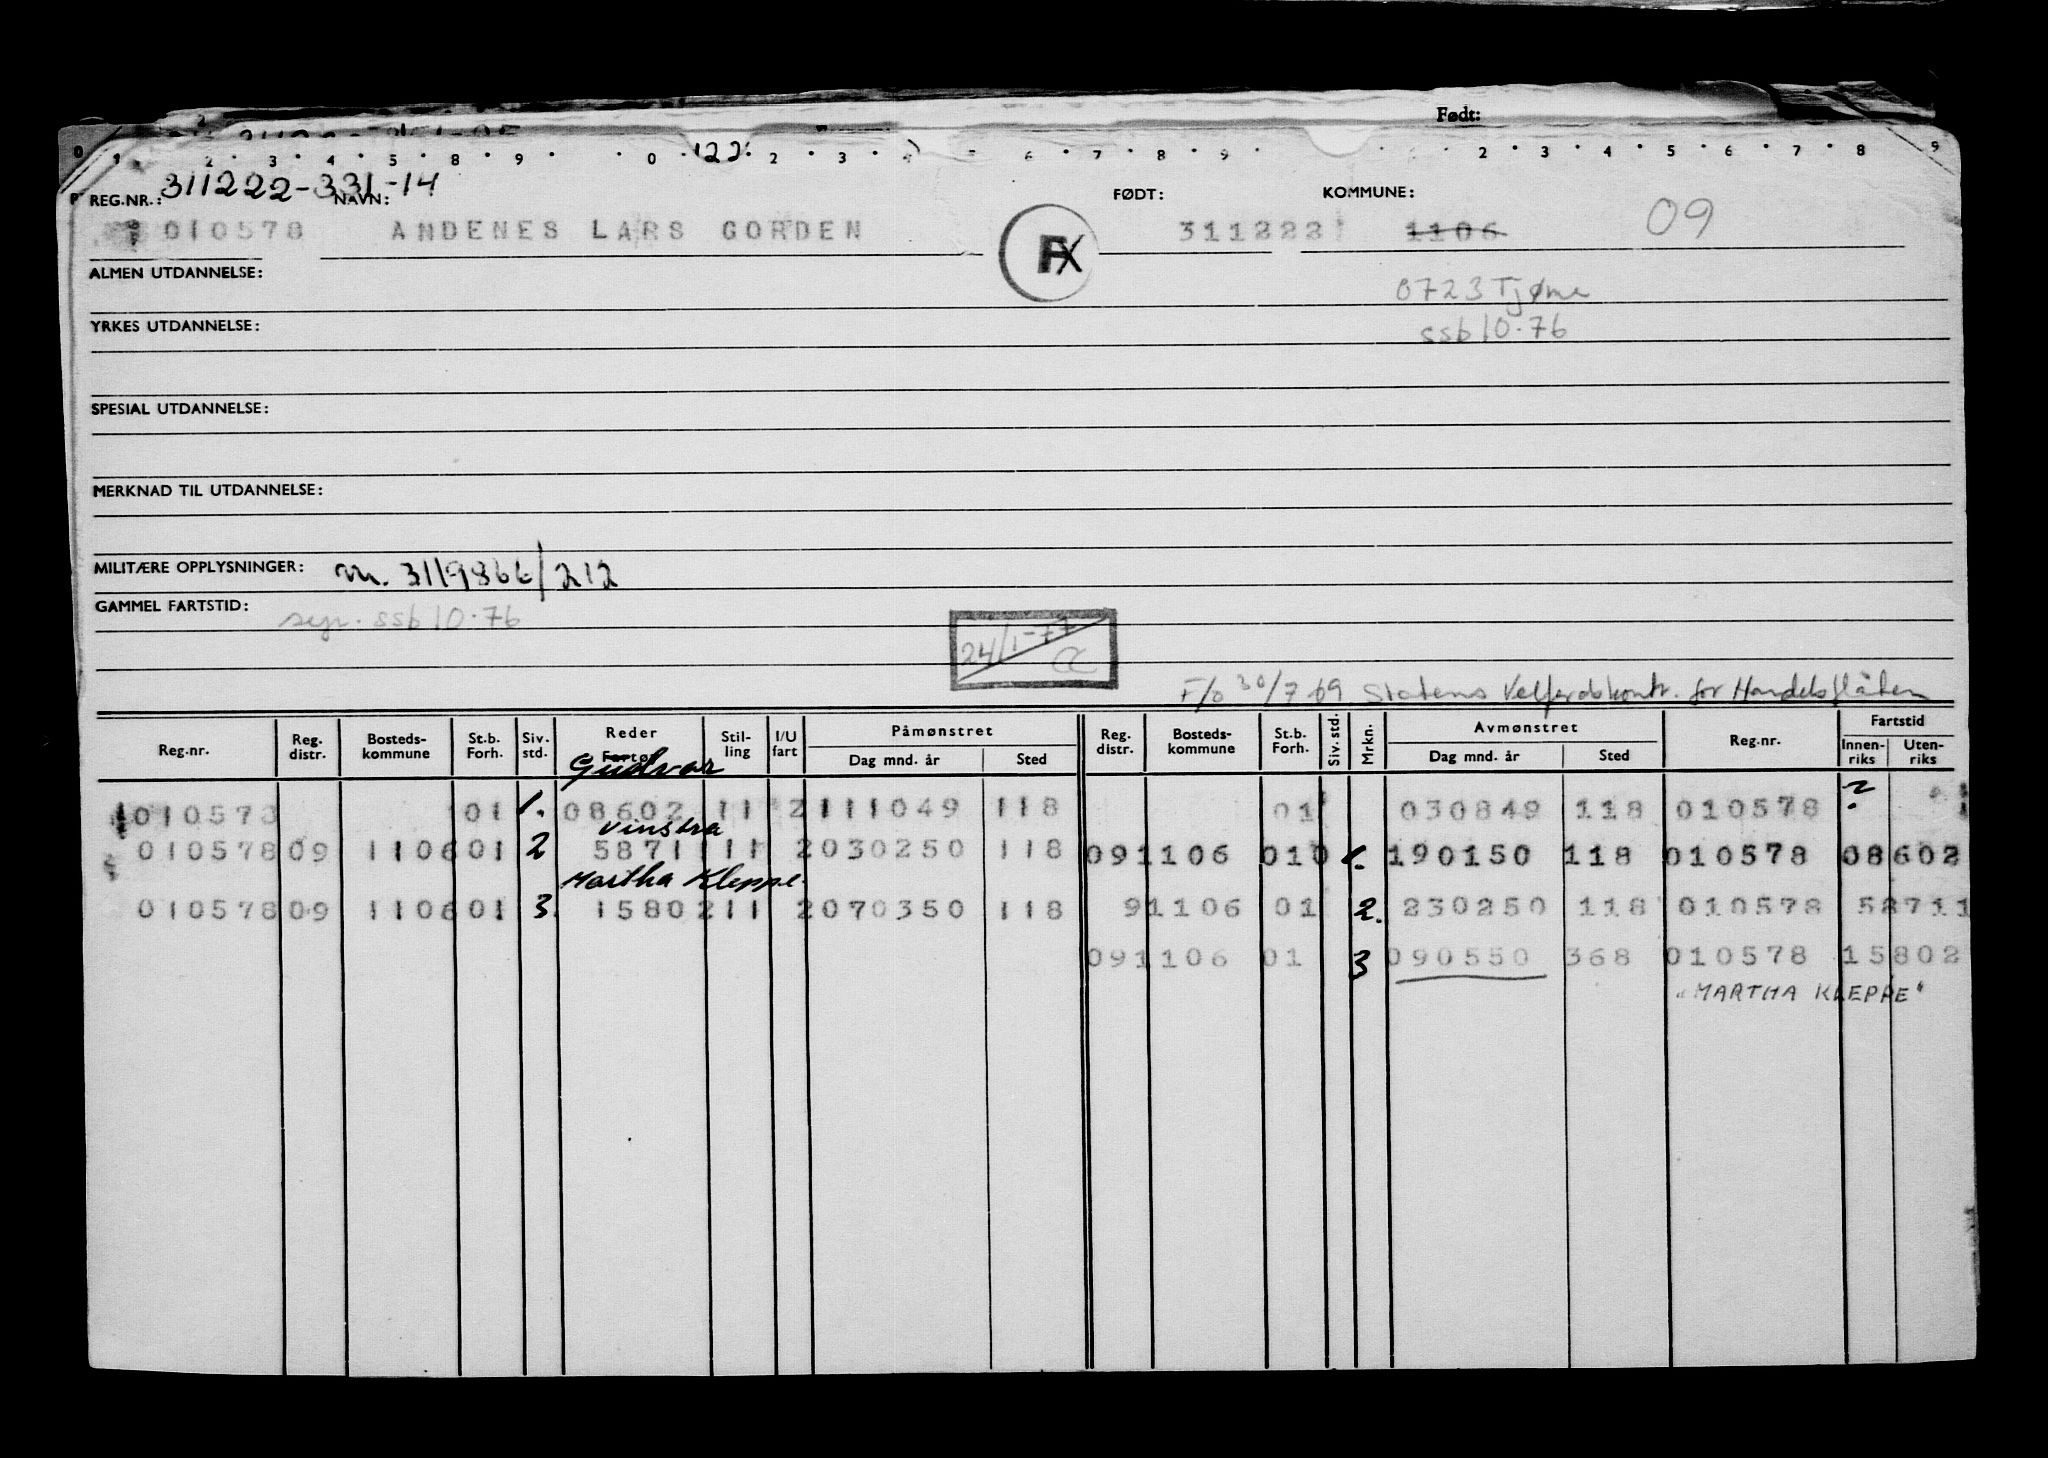 Født:
0 1 2 3 4 5 8 9 0 122 2 3 4 6 7 8 9 2 3 4 5 6 7 8 9
REG.NR.: 311222-331-14 NAVN: FØDT: KOMMUNE:
010578 ANDENES LARS GORDEN FX 311222 1106 09
ALMEN UTDANNELSE:
0723 Tjøme
YRKES UTDANNELSE:
ssb 10.76
SPESIAL UTDANNELSE:
MERKNAD TIL UTDANNELSE:
MILITÆRE OPPLYSNINGER: m. 3119866/212
GAMMEL FARTSTID: ssb 10.76
24/1-77
F/o 30/7 69 Statens Velferdskontr. for Handelsflåten
Reg.nr. Reg. distr. Bosteds-kommune St.b. Forh. Siv. std. Reder Fartøy Stil-ling I/U fart Påmønstret Dag mnd. år Sted Reg. distr. Bosteds-kommune St.b. Forh. Siv. std. Mrkn. Avmønstret Dag mnd. år Sted Reg.nr. Fartstid Innen-riks Uten-riks
Gudvar
010578 01 1. 08602 11 2 111049 118 01 030849 118 010578 ?
Vinstra
010578 09 1106 01 2 5871 1 11 2 030250 118 09 1106 010 1. 190150 118 010578 08602
Martha Kleppe
010578 09 1106 01 3. 15802 11 2 070350 118 9 1106 01 2. 230250 118 010578 58711
09 1106 01 3 090550 368 010578 15802
"MARTHA KLEPPE"